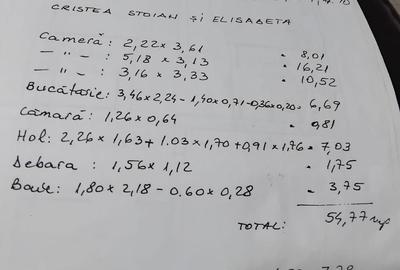 CRISTEA STOIAN și ELISABETA
Cameră : 2,22 x 3,61 = 8,01
— " — : 5,18 x 3,13 = 16,21
— " — : 3,16 x 3,33 = 10,52
Bucătărie: 3,46x2,24-1,40x0,71-0,36x0,20= 6,69
Cămară: 1,26 x 0,64 = 0,81
Hol: 2,26 x 1,63 + 1.03 x 1,70 + 0,91 x 1,76 = 7,03
Debara : 1,56 x 1,12 = 1,75
Baie: 1,80 x 2,18 - 0.60 x 0,28 = 3,75
TOTAL: 54,77 mp